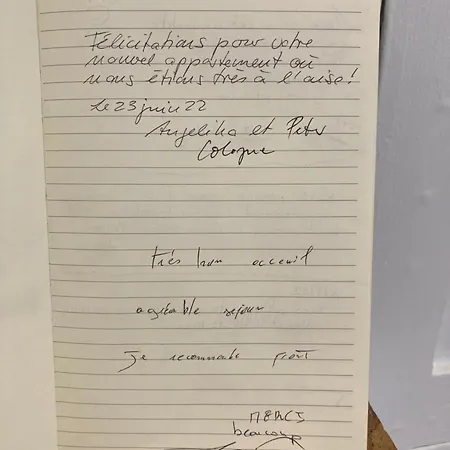 Félicitations pour votre
nouvel appartement où
nous étions très à l'aise!
Le 23 juin 22
Angelika et Peter
Cologne
très bon acceuil
agréable sejour
Je recommate
MERCI
beaucoup